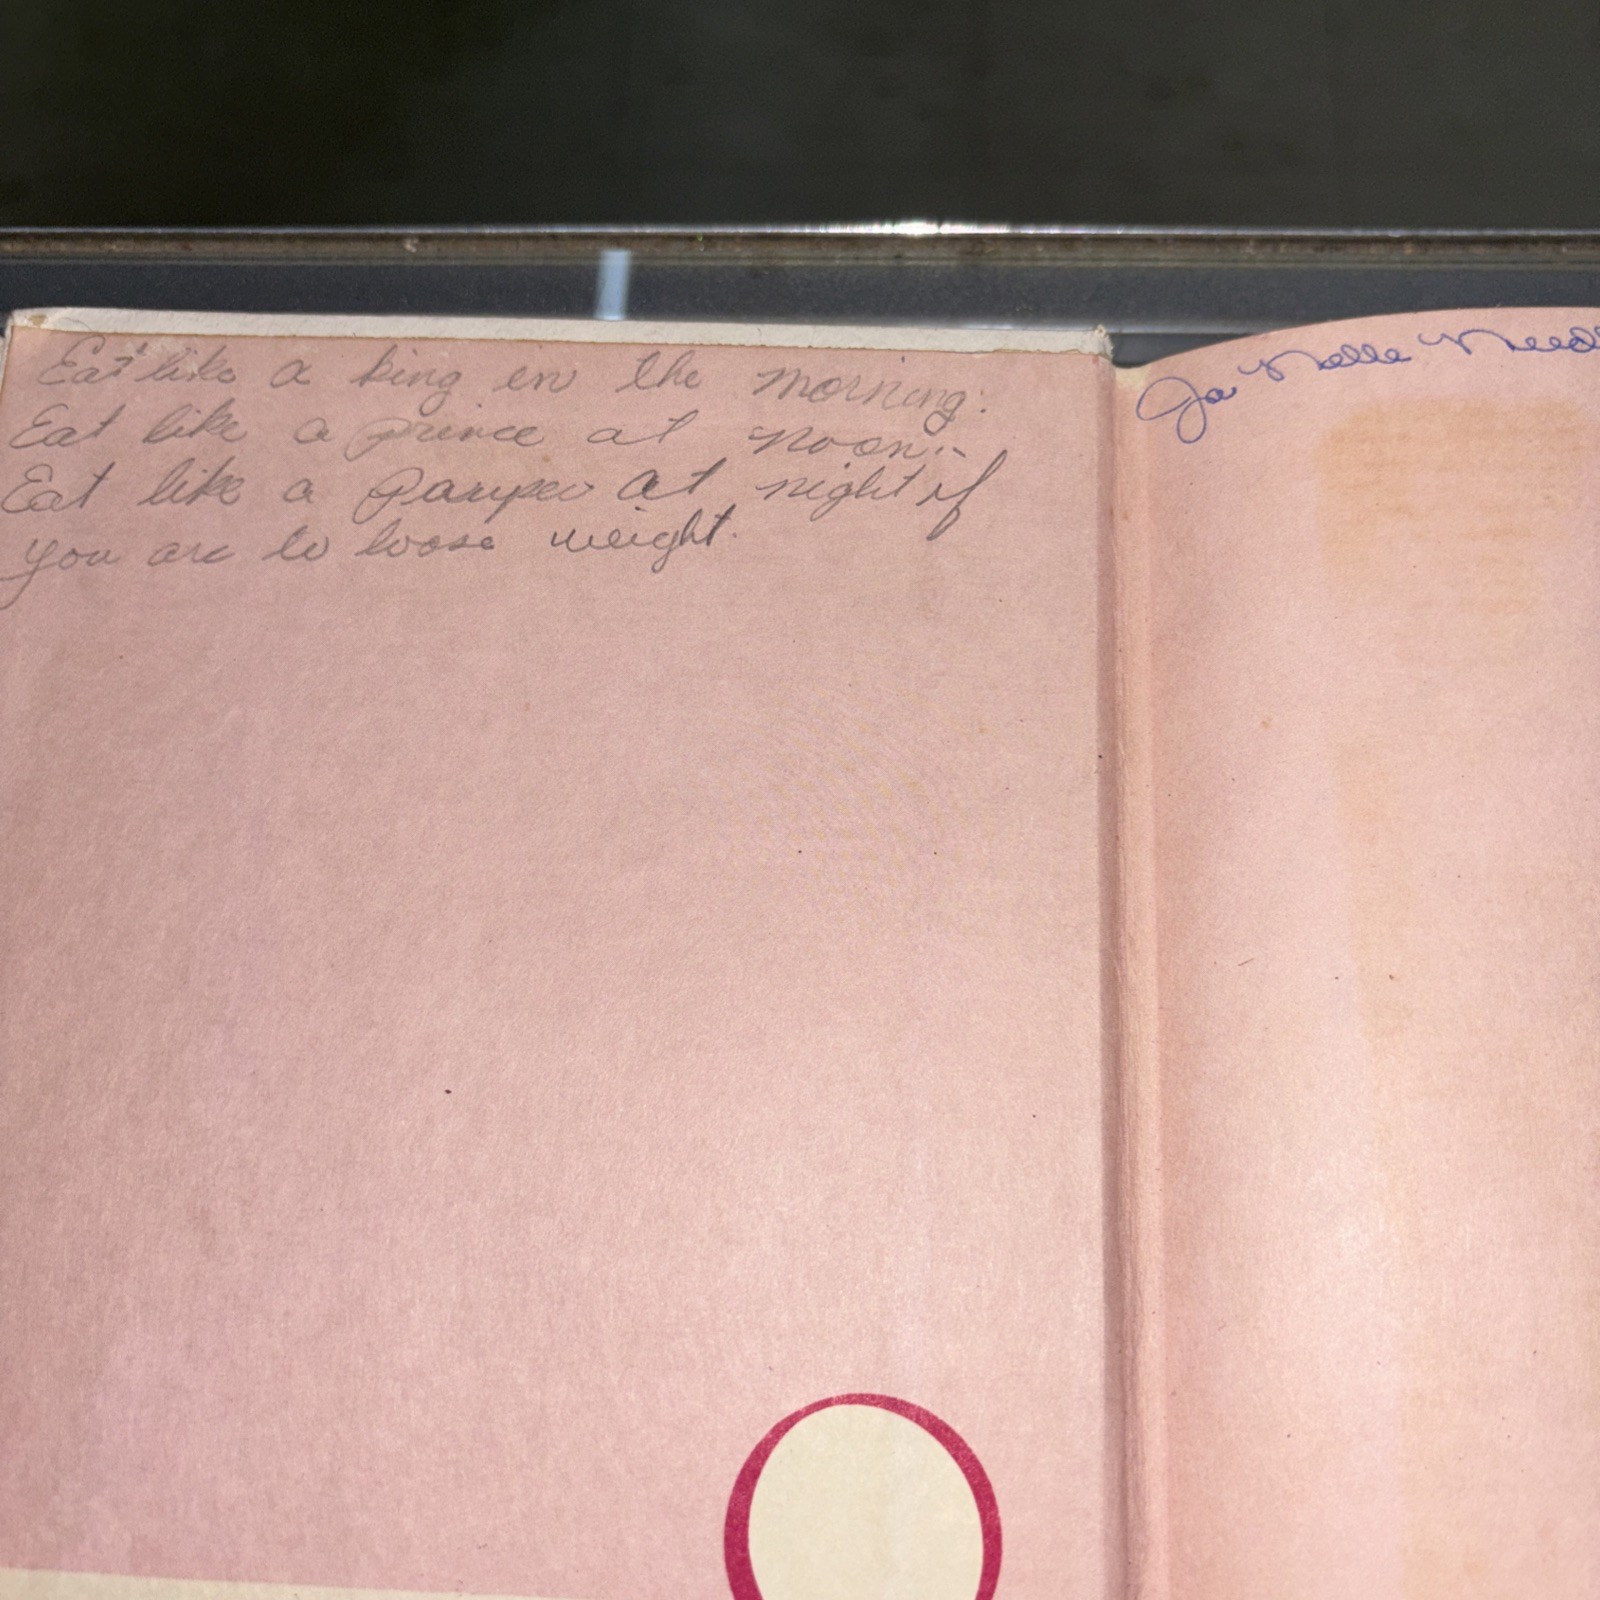 Eat like a king in the morning.
Eat like a prince at noon.
Eat like a Pauper at night if
you are to loose weight.
Ja Nelle